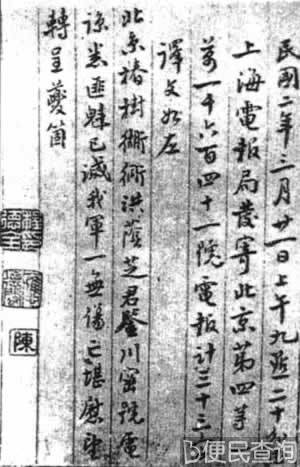 民國二年三月廿一日上午九點二十
上海電報局發寄北京第四等
萬一千六百四十一號電報計三十三
譯文如左
北京椿樹衚衕洪蔭芝君鑒川密號電
諒悉匪魁已滅我軍一無傷亡堪慰望
轉呈夔箇
陳
便民查询